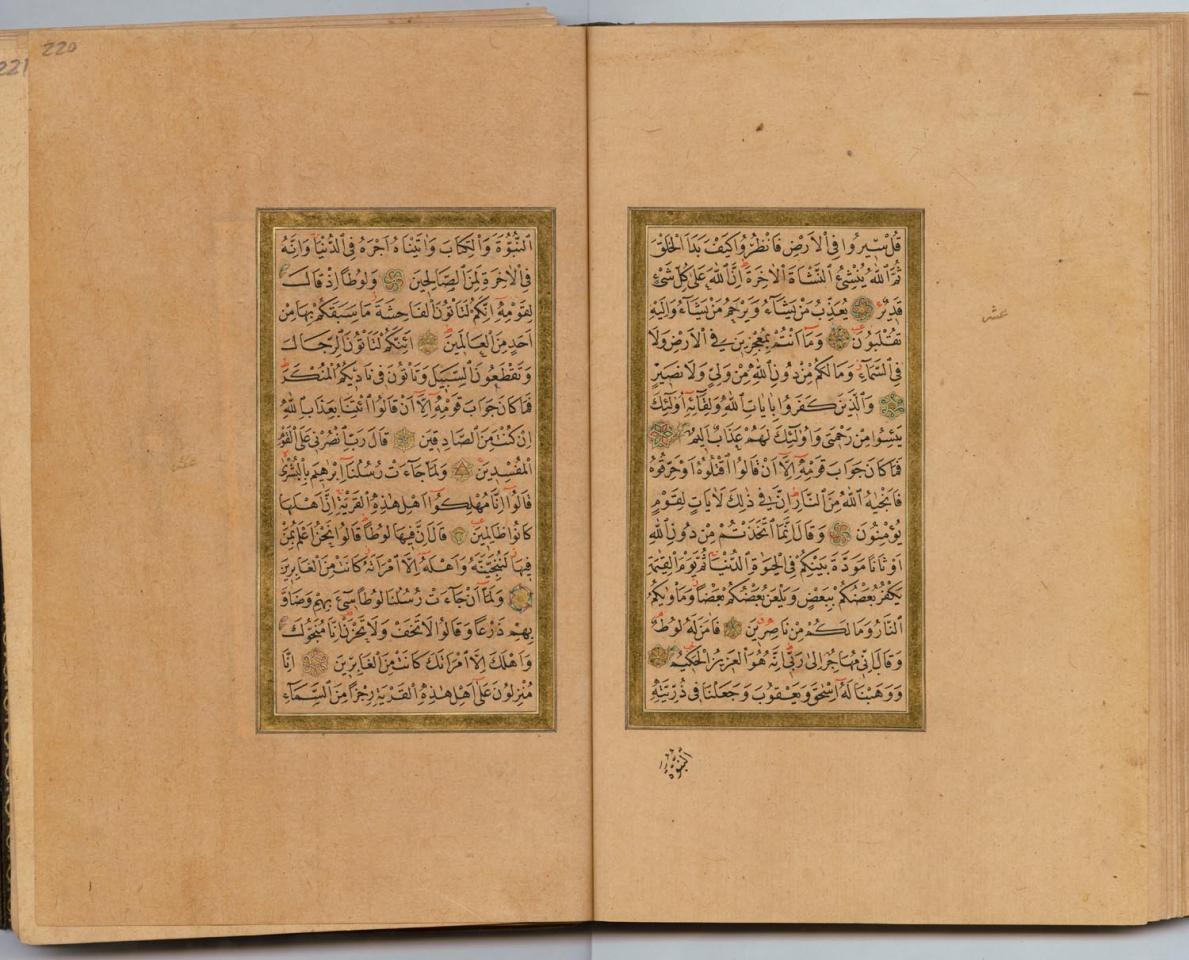 قُلْ سِيرُوا فِي الْاَرْضِ فَانْظُرُوا كَيْفَ بَدَاَ الْخَلْقَ
ثُمَّ اللّٰهُ يُنْشِئُ النَّشْاَةَ الْاٰخِرَةَ اِنَّ اللّٰهَ عَلٰى كُلِّ شَيْءٍ
قَدِيرٌ يُعَذِّبُ مَنْ يَشَٓاءُ وَيَرْحَمُ مَنْ يَشَٓاءُ وَاِلَيْهِ
تُقْلَبُونَ وَمَٓا اَنْتُمْ بِمُعْجِزِينَ فِي الْاَرْضِ وَلَا
فِي السَّمَٓاءِ وَمَا لَكُمْ مِنْ دُونِ اللّٰهِ مِنْ وَلِيٍّ وَلَا نَصِيرٍ
وَالَّذِينَ كَفَرُوا بِاٰيَاتِ اللّٰهِ وَلِقَٓائِهِ اُولٰٓئِكَ
يَئِسُوا مِنْ رَحْمَتِي وَاُولٰٓئِكَ لَهُمْ عَذَابٌ اَلِيمٌ
فَمَا كَانَ جَوَابَ قَوْمِهِٓ اِلَّٓا اَنْ قَالُوا اقْتُلُوهُ اَوْ حَرِّقُوهُ
فَاَنْجٰيهُ اللّٰهُ مِنَ النَّارِ اِنَّ فِي ذٰلِكَ لَاٰيَاتٍ لِقَوْمٍ
يُؤْمِنُونَ وَقَالَ اِنَّمَا اتَّخَذْتُمْ مِنْ دُونِ اللّٰهِ
اَوْثَانًا مَوَدَّةَ بَيْنِكُمْ فِي الْحَيٰوةِ الدُّنْيَا ثُمَّ يَوْمَ الْقِيٰمَةِ
يَكْفُرُ بَعْضُكُمْ بِبَعْضٍ وَيَلْعَنُ بَعْضُكُمْ بَعْضًا وَمَاْوٰيكُمُ
النَّارُ وَمَا لَكُمْ مِنْ نَاصِرِينَ فَاٰمَنَ لَهُ لُوطٌ
وَقَالَ اِنِّي مُهَاجِرٌ اِلٰى رَبِّي اِنَّهُ هُوَ الْعَزِيزُ الْحَكِيمُ
وَوَهَبْنَا لَهُٓ اِسْحٰقَ وَيَعْقُوبَ وَجَعَلْنَا فِي ذُرِّيَّتِهِ
النُّبُوَّةَ
عشر
النُّبُوَّةَ وَالْكِتَابَ وَاٰتَيْنَاهُ اَجْرَهُ فِي الدُّنْيَا وَاِنَّهُ
فِي الْاٰخِرَةِ لَمِنَ الصَّالِحِينَ وَلُوطًا اِذْ قَالَ
لِقَوْمِهِٓ اِنَّكُمْ لَتَاْتُونَ الْفَاحِشَةَ مَا سَبَقَكُمْ بِهَا مِنْ
اَحَدٍ مِنَ الْعَالَمِينَ اَئِنَّكُمْ لَتَاْتُونَ الرِّجَالَ
وَتَقْطَعُونَ السَّبِيلَ وَتَاْتُونَ فِي نَادِيكُمُ الْمُنْكَرَ
فَمَا كَانَ جَوَابَ قَوْمِهِٓ اِلَّٓا اَنْ قَالُوا ائْتِنَا بِعَذَابِ اللّٰهِ
اِنْ كُنْتَ مِنَ الصَّادِقِينَ قَالَ رَبِّ انْصُرْنِي عَلَى الْقَوْمِ
الْمُفْسِدِينَ وَلَمَّا جَٓاءَتْ رُسُلُنَٓا اِبْرٰهِيمَ بِالْبُشْرٰى
قَالُٓوا اِنَّا مُهْلِكُٓوا اَهْلِ هٰذِهِ الْقَرْيَةِ اِنَّ اَهْلَهَا
كَانُوا ظَالِمِينَ قَالَ اِنَّ فِيهَا لُوطًا قَالُوا نَحْنُ اَعْلَمُ بِمَنْ
فِيهَا لَنُنَجِّيَنَّهُ وَاَهْلَهُٓ اِلَّا امْرَاَتَهُ كَانَتْ مِنَ الْغَابِرِينَ
وَلَمَّٓا اَنْ جَٓاءَتْ رُسُلُنَا لُوطًا سِٓيءَ بِهِمْ وَضَاقَ
بِهِمْ ذَرْعًا وَقَالُوا لَا تَخَفْ وَلَا تَحْزَنْ اِنَّا مُنَجُّوكَ
وَاَهْلَكَ اِلَّا امْرَاَتَكَ كَانَتْ مِنَ الْغَابِرِينَ اِنَّا
مُنْزِلُونَ عَلٰٓى اَهْلِ هٰذِهِ الْقَرْيَةِ رِجْزًا مِنَ السَّمَٓاءِ
220
221